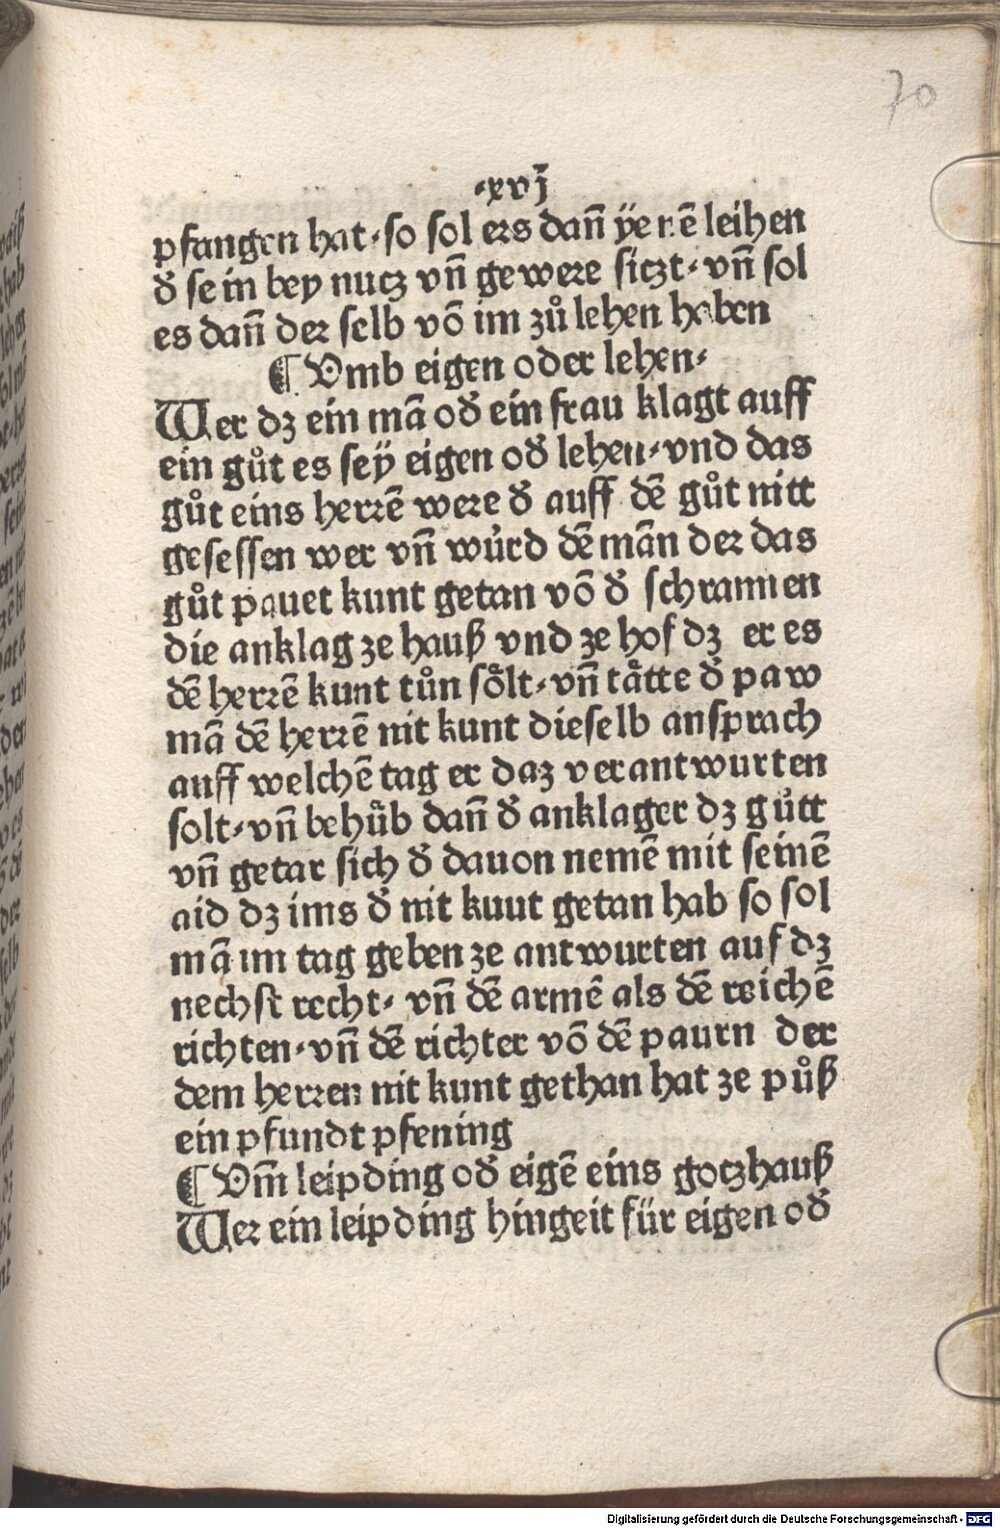 70
·xvj
pfangen hat·so sol ers dañ ÿenē leihen
ð sein bey nutz vñ gewere siczt·vñ sol
es dañ der selb vō im zů lehen haben
¶ Vmb eigen oder lehen·
Wer dz ein mā oð ein frau klagt auff
ein gůt es seÿ eigen oð lehen·vnd das
gůt eins herrē were ð auff dē gůt nitt
gesessen wer vñ wůrd dē mān der das
gůt pauet kunt getan vō ð schrannen
die anklag ze hauß vnd ze hof dz er es
dē herrē kunt tůn sölt·vñ tätte ð paw
mā dē herrē nit kunt dieselb ansprach
auff welchē tag er daz verantwurten
solt·vñ behůb dañ ð anklager dz gůtt
vñ getar sich ð dauon nemē mit seinē
aid dz ims ð nit kuut getan hab so sol
mā im tag geben ze antwurten auf dz
nechst recht· vñ dē armē als dē reichē
richten·vñ dē richter vō dē paurn der
dem herren nit kunt gethan hat ze půß
ein pfundt pfening
¶ Vm̄ leipding oð eigē eins gotzhauß
Wer ein leipding hingeit für eigen oð
Digitalisierung gefördert durch die Deutsche Forschungsgemeinschaft - DFG